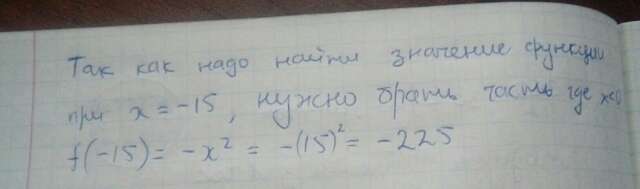 Так как надо найти значение функции
при x = -15, нужно брать часть где x<0
f(-15) = -x² = -(15)² = -225